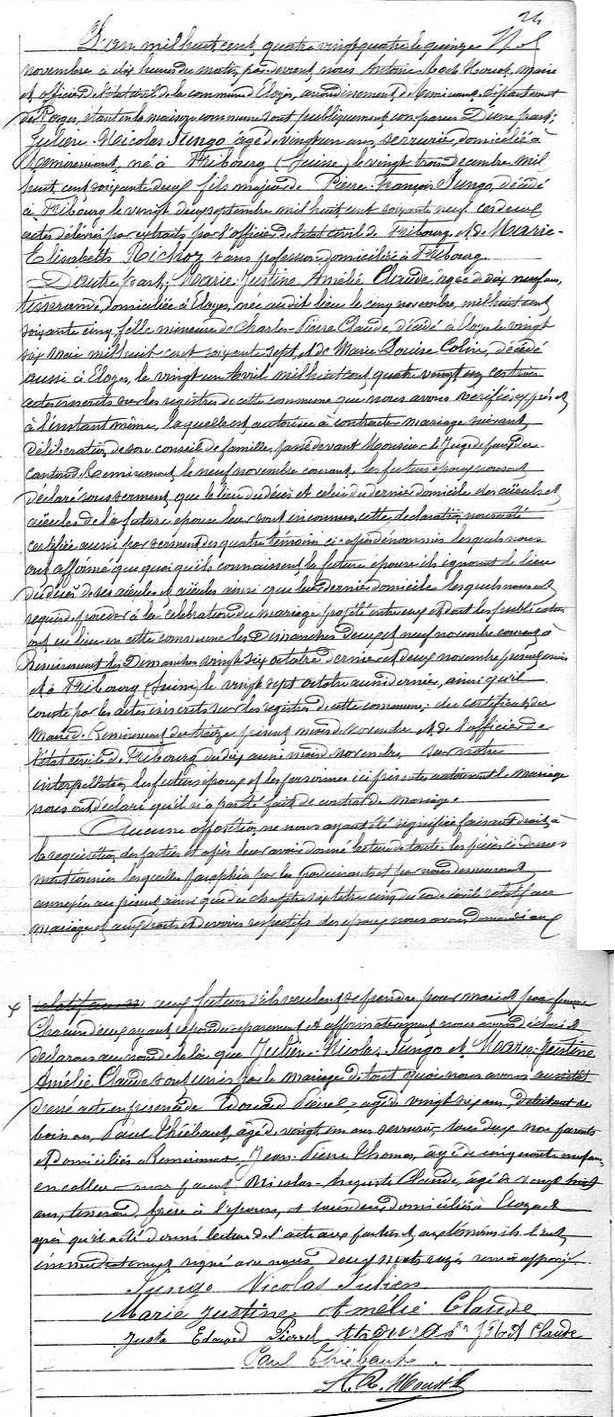 24
L'an mil huit cent quatre vingt quatre le quinze
novembre à dix heures du matin, par devant nous Antoine maire
et officier de l'état civil de la commune d'Eloyes, arrondissement de Remiremont, département
des Vosges, étant en la maison commune sont publiquement comparus D'une part;
Julien-Nicolas Jungo âgé de vingt un ans, serrurier, domicilié à
Remiremont, né à Fribourg (Suisse) le vingt trois décembre mil
huit cent soixante deux fils majeur de Pierre-François Jungo, décédé
à Fribourg le vingt deux septembre mil huit cent soixante neuf, ces deux
actes délivrés par extraits par l'officier de l'état civil de Fribourg, et de Marie-
Elisabeth Richoz sans profession domiciliée à Fribourg
D'autre part; Marie-Justine Amélie Claude âgée de dix neuf ans,
tisserande, domiciliée à Eloyes, née audit lieu le cinq novembre, mil huit cent
soixante cinq, fille mineure de Charles-Pierre Claude, décédé à Eloyes le vingt
six mil huit cent soixante sept, et de Marie Louise Colin, décédée
aussi à Eloyes, le vingt un avril mil huit cent quatre vingt ces trois
actes inscrits sur les registres de cette commune que nous avons vérifiés exprès et
à l'instant même, laquelle est autorisée à contracter mariage suivant
délibération de son conseil de famille, passé devant Monsieur le Juge de paix du
canton de Remiremont, le neuf novembre courant, les futurs époux nous ont
déclaré sous serment, que le lieu du décès et celui du dernier domicile des aïeuls et
aïeules de la future épouse leur sont inconnus, cette déclaration nous a été
certifiée aussi par serment des quatre témoins ci-après dénommés lesquels nous
ont affirmé que quoiqu'ils connaissent la future épouse ils ignorent le lieu
du décès de ses aïeuls et aïeules ainsi que leur dernier domicile lesquels nous ont
requis de procéder à la célébration du mariage projeté entre eux et dont les publications
ont eu lieu en cette commune les Dimanches deux et neuf novembre courant, à
Remiremont les Dimanches vingt six octobre dernier et deux novembre présent mois
et à Fribourg (Suisse) le vingt sept octobre aussi dernier, ainsi qu'il
conste par les actes inscrits sur les registres de cette commune, des certificats du
Maire de Remiremont du treize présent mois de novembre et de l'officier de
l'état civil de Fribourg du dix aussi mois novembre. Sur notre
interpellation, les futurs époux et les personnes ici présentes autorisant le mariage
nous ont déclaré qu'il n'a pas été fait de contrat de mariage.
Aucune opposition ne nous ayant été signifiée faisant droit à
la réquisition des parties et après leur avoir donné lecture de toutes les pièces ci-dessus
mentionnées lesquelles paraphées par les et par nous demeureront
annexées au présent ainsi que du chapitre six titre cinq du code civil relatif au
mariage et aux droits et devoirs respectifs des époux nous avons demandé aux
relatif au aux futurs s'ils veulent se prendre pour mari et pour femme
Chacun d'eux ayant répondu séparément et affirmativement nous avons déclaré et
déclarons au nom de la loi que Julien-Nicolas Jungo et Marie-Justine
Amélie Claude sont unis par le mariage de tout quoi nous avons
dressé acte en présence de Edouard Pierrel, âgé de vingt six ans, débitant de
boisson, Paul Thiébaut, âgé de vingt un ans serrurier, tous deux non parents
et domiciliés à Remiremont, Jean-Pierre Thomas, âgé de cinquante neuf ans,
encolleur non parent Nicolas-Auguste Claude, âgé de vingt huit
ans, tisserand, frère à l'épouse, et tous deux domiciliés à Eloyes et
après qu'il a été donné lecture de l'acte aux parties et aux témoins ils l'ont
immédiatement signé avec nous deux mots rayés
Jungo Nicolas Julien
Marie Justine Amélie Claude
Juste Edouard Pierrel Claude
Paul Thiébaut